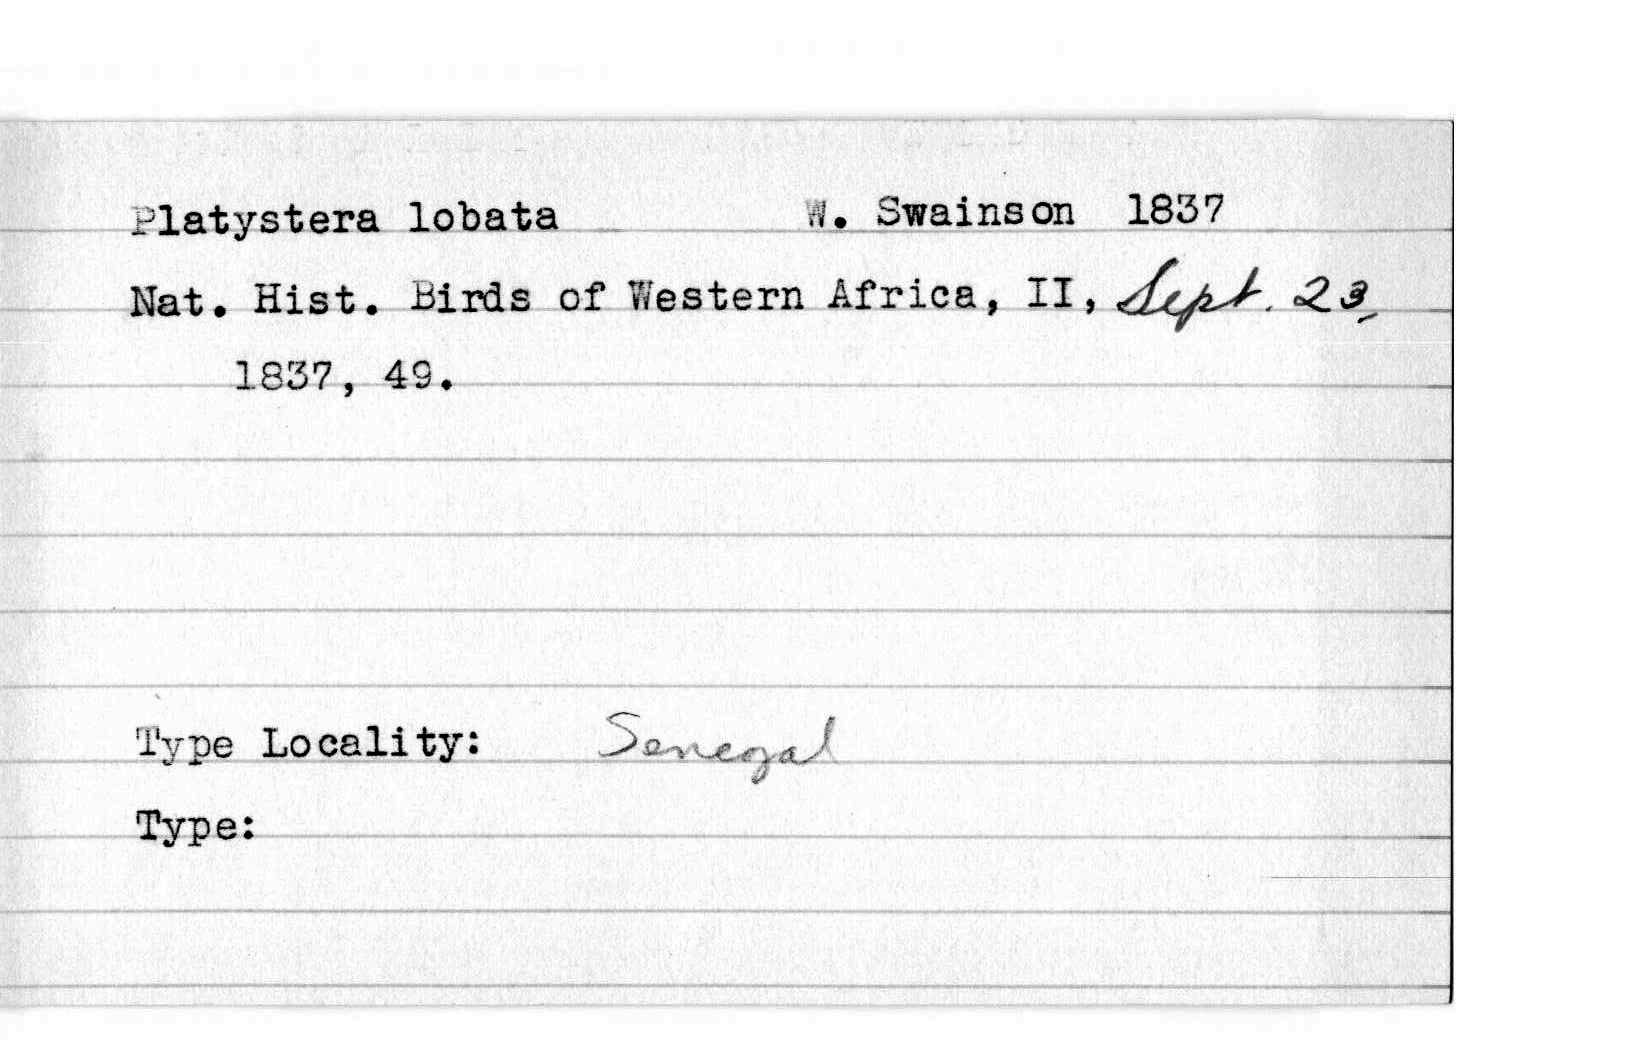 Platystera lobata W. Swainson 1837
Nat. Hist. Birds of Western Africa, II, Sept. 23,
1837, 49.
Type Locality: Senegal
Type: